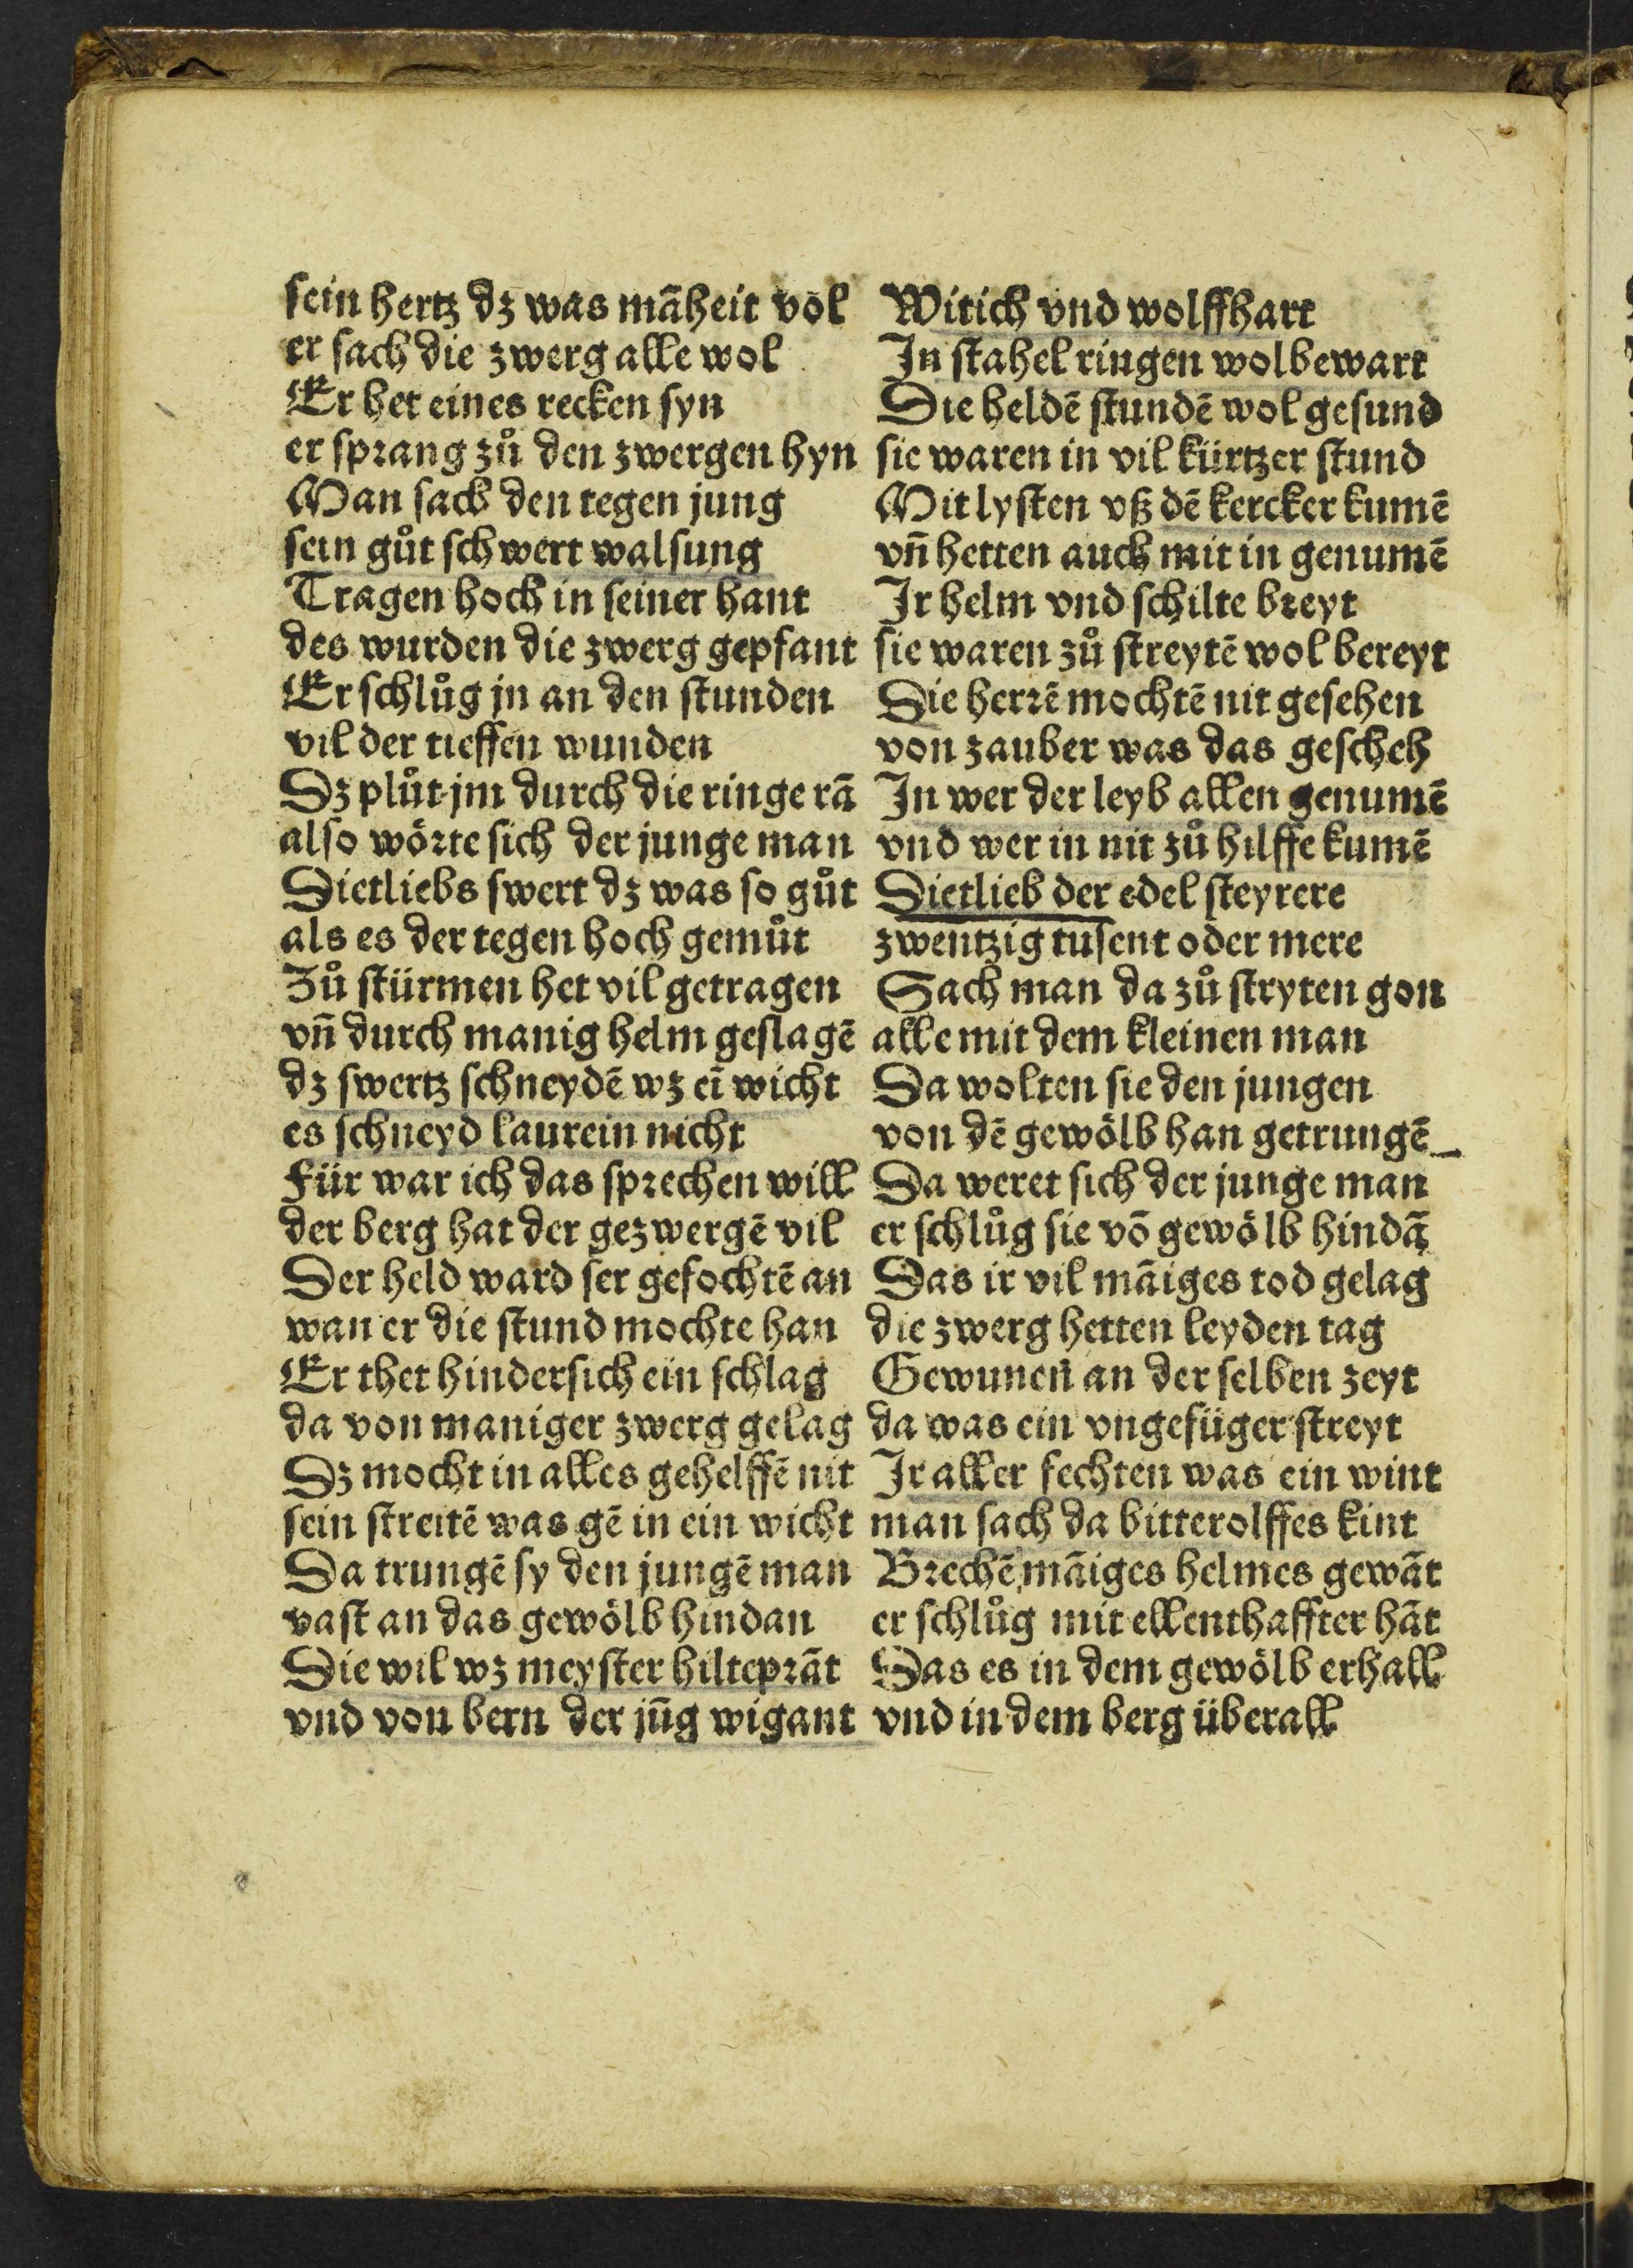 sein hertz dz was mãheit vol
er sach die zwerg alle wol
Er het eines recken syn
er sprang zů den zwergen hyn
Man sach den tegen jung
sein gůt schwert walsung
Tragen hoch in seiner hant
des wurden die zwerg gepfant
Er schlůg jn an den stunden
vil der tieffen wunden
Dz plůt jm durch die ringe rã
also wörte sich der junge man
Dietliebs swert dz was so gůt
als es der tegen hoch gemůt
Zů stürmen het vil getragen
vñ durch manig helm geslagẽ
dz swertz schneydẽ wz eĩ wicht
es schneyd laurein nicht
Für war ich das sprechen will
der berg hat der gezwergẽ vil
Der held ward ser gefochtẽ an
wan er die stund mochte han
Er thet hindersich ein schlag
da von maniger zwerg gelag
Dz mocht in alles gehelffẽ nit
sein streitẽ was gẽ in ein wicht
Da trungẽ sy den jungẽ man
vast an das gewölb hindan
Die wil wz meyster hilteprãt
vnd von bern der jũg wigant
Witich vnd wolffhart
In stahel ringen wolbewart
Die heldẽ stundẽ wol gesund
sie waren in vil kürtzer stund
Mit lysten vß dẽ kercker kumẽ
vñ hetten auch mit in genumẽ
Ir helm vnd schilte breyt
sie waren zů streytẽ wol bereyt
Die herrẽ mochtẽ nit gesehen
von zauber was das gescheh
In wer der leyb allen genumẽ
vnd wer in nit zů hilffe kumẽ
Dietlieb der edel steyrere
zwentzig tusent oder mere
Sach man da zů stryten gon
alle mit dem kleinen man
Da wolten sie den jungen
von dẽ gewölb han getrungẽ
Da weret sich der junge man
er schlůg sie võ gewölb hindã
Das ir vil mãiges tod gelag
die zwerg hetten leyden tag
Gewunen an der selben zeyt
da was ein vngefüger streyt
Ir aller fechten was ein wint
man sach da bitterolffes kint
Brechẽ mãiges helmes gewãt
er schlůg mit ellenthaffter hãt
Das es in dem gewölb erhall
vnd in dem berg überall